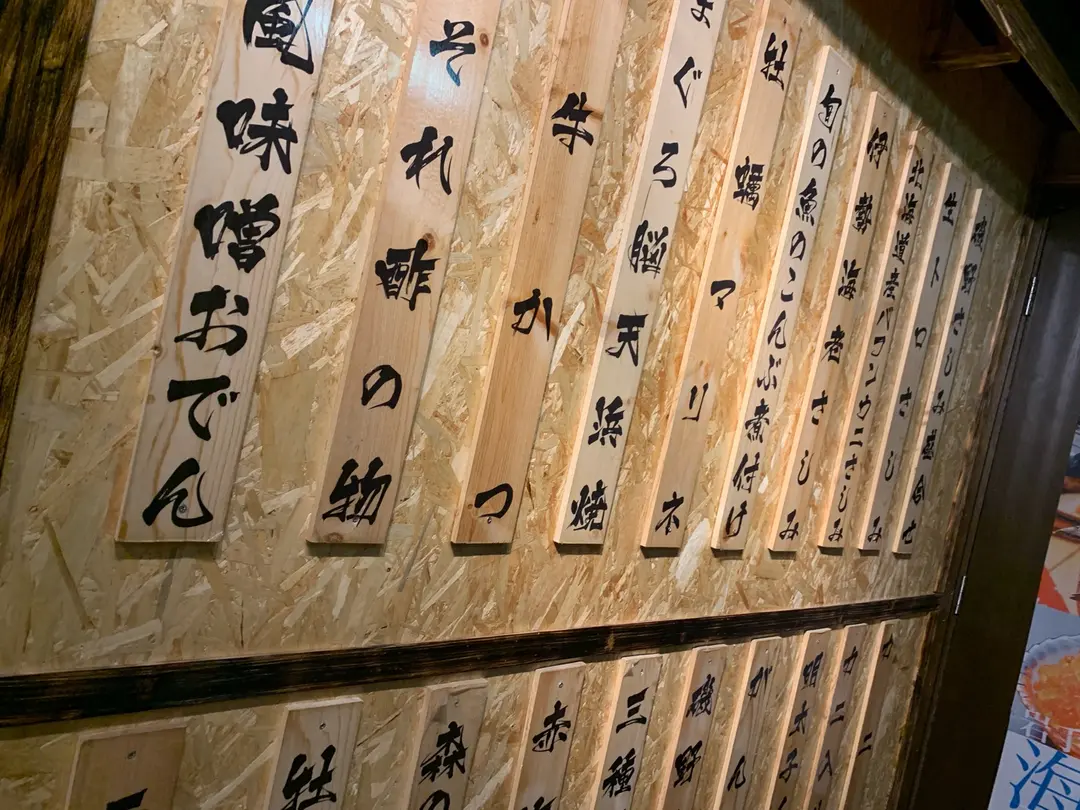 磯野さしみ盛合せ
さしみ
北海道産バフンウニさしみ
伊勢海老さしみ
旬の魚のこんぶ煮付け
牡蠣マリネ
まぐろ脳天浜焼
牛かつ
それ酢の物
風味噌おでん
明太子
がん
磯野
三種
赤
森の
牡